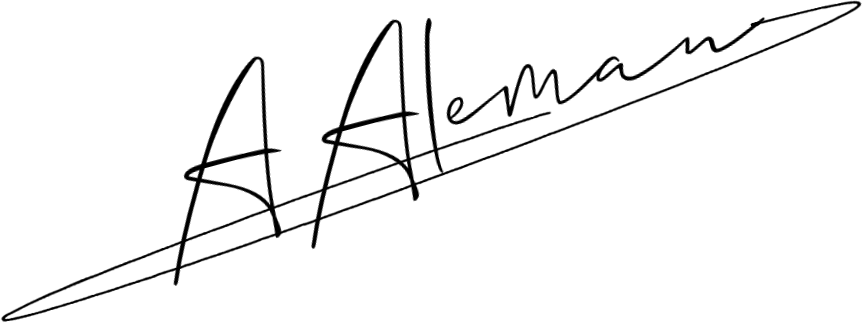 A Aleman